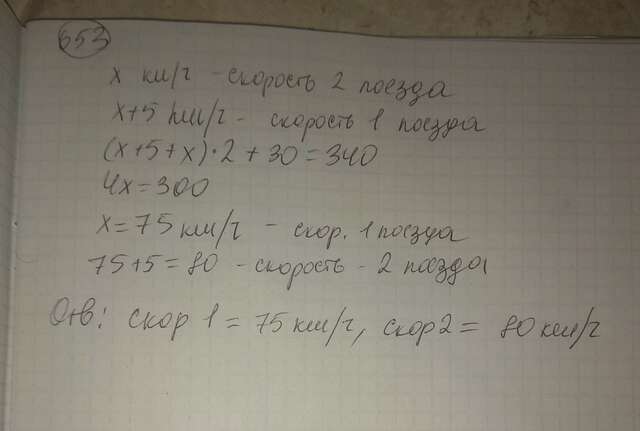 653
x км/г - скорость 2 поезда
x+5 км/г - скорость 1 поезда
(x+5+x)·2+30=340
4x=300
x=75 км/г - скор. 1 поезда
75+5=80 - скорость - 2 поезда
Отв: скор 1 = 75 км/г, скор 2 = 80 км/г